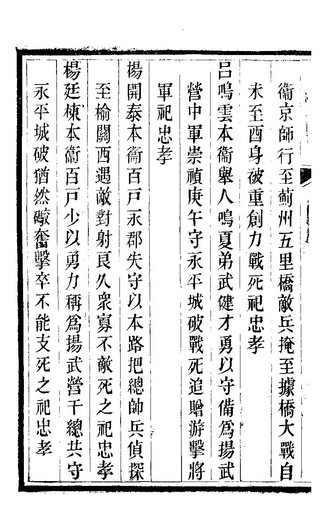 衞京師行至薊州五里橋敵兵掩至據橋大戰自
未至酉身被重創力戰死祀忠孝
呂鳴雲本衞舉人鳴夏弟武健才勇以守備爲揚武
營中軍崇禎庚午守永平城破戰死追贈游擊將
軍祀忠孝
楊開泰本衞百戸永郡失守以本路把總帥兵偵探
至榆關西遇敵對射良久衆寡不敵死之祀忠孝
楊廷棟本衞百戸少以勇力稱爲揚武營千總共守
永平城破猶然奮擊卒不能支死之祀忠孝